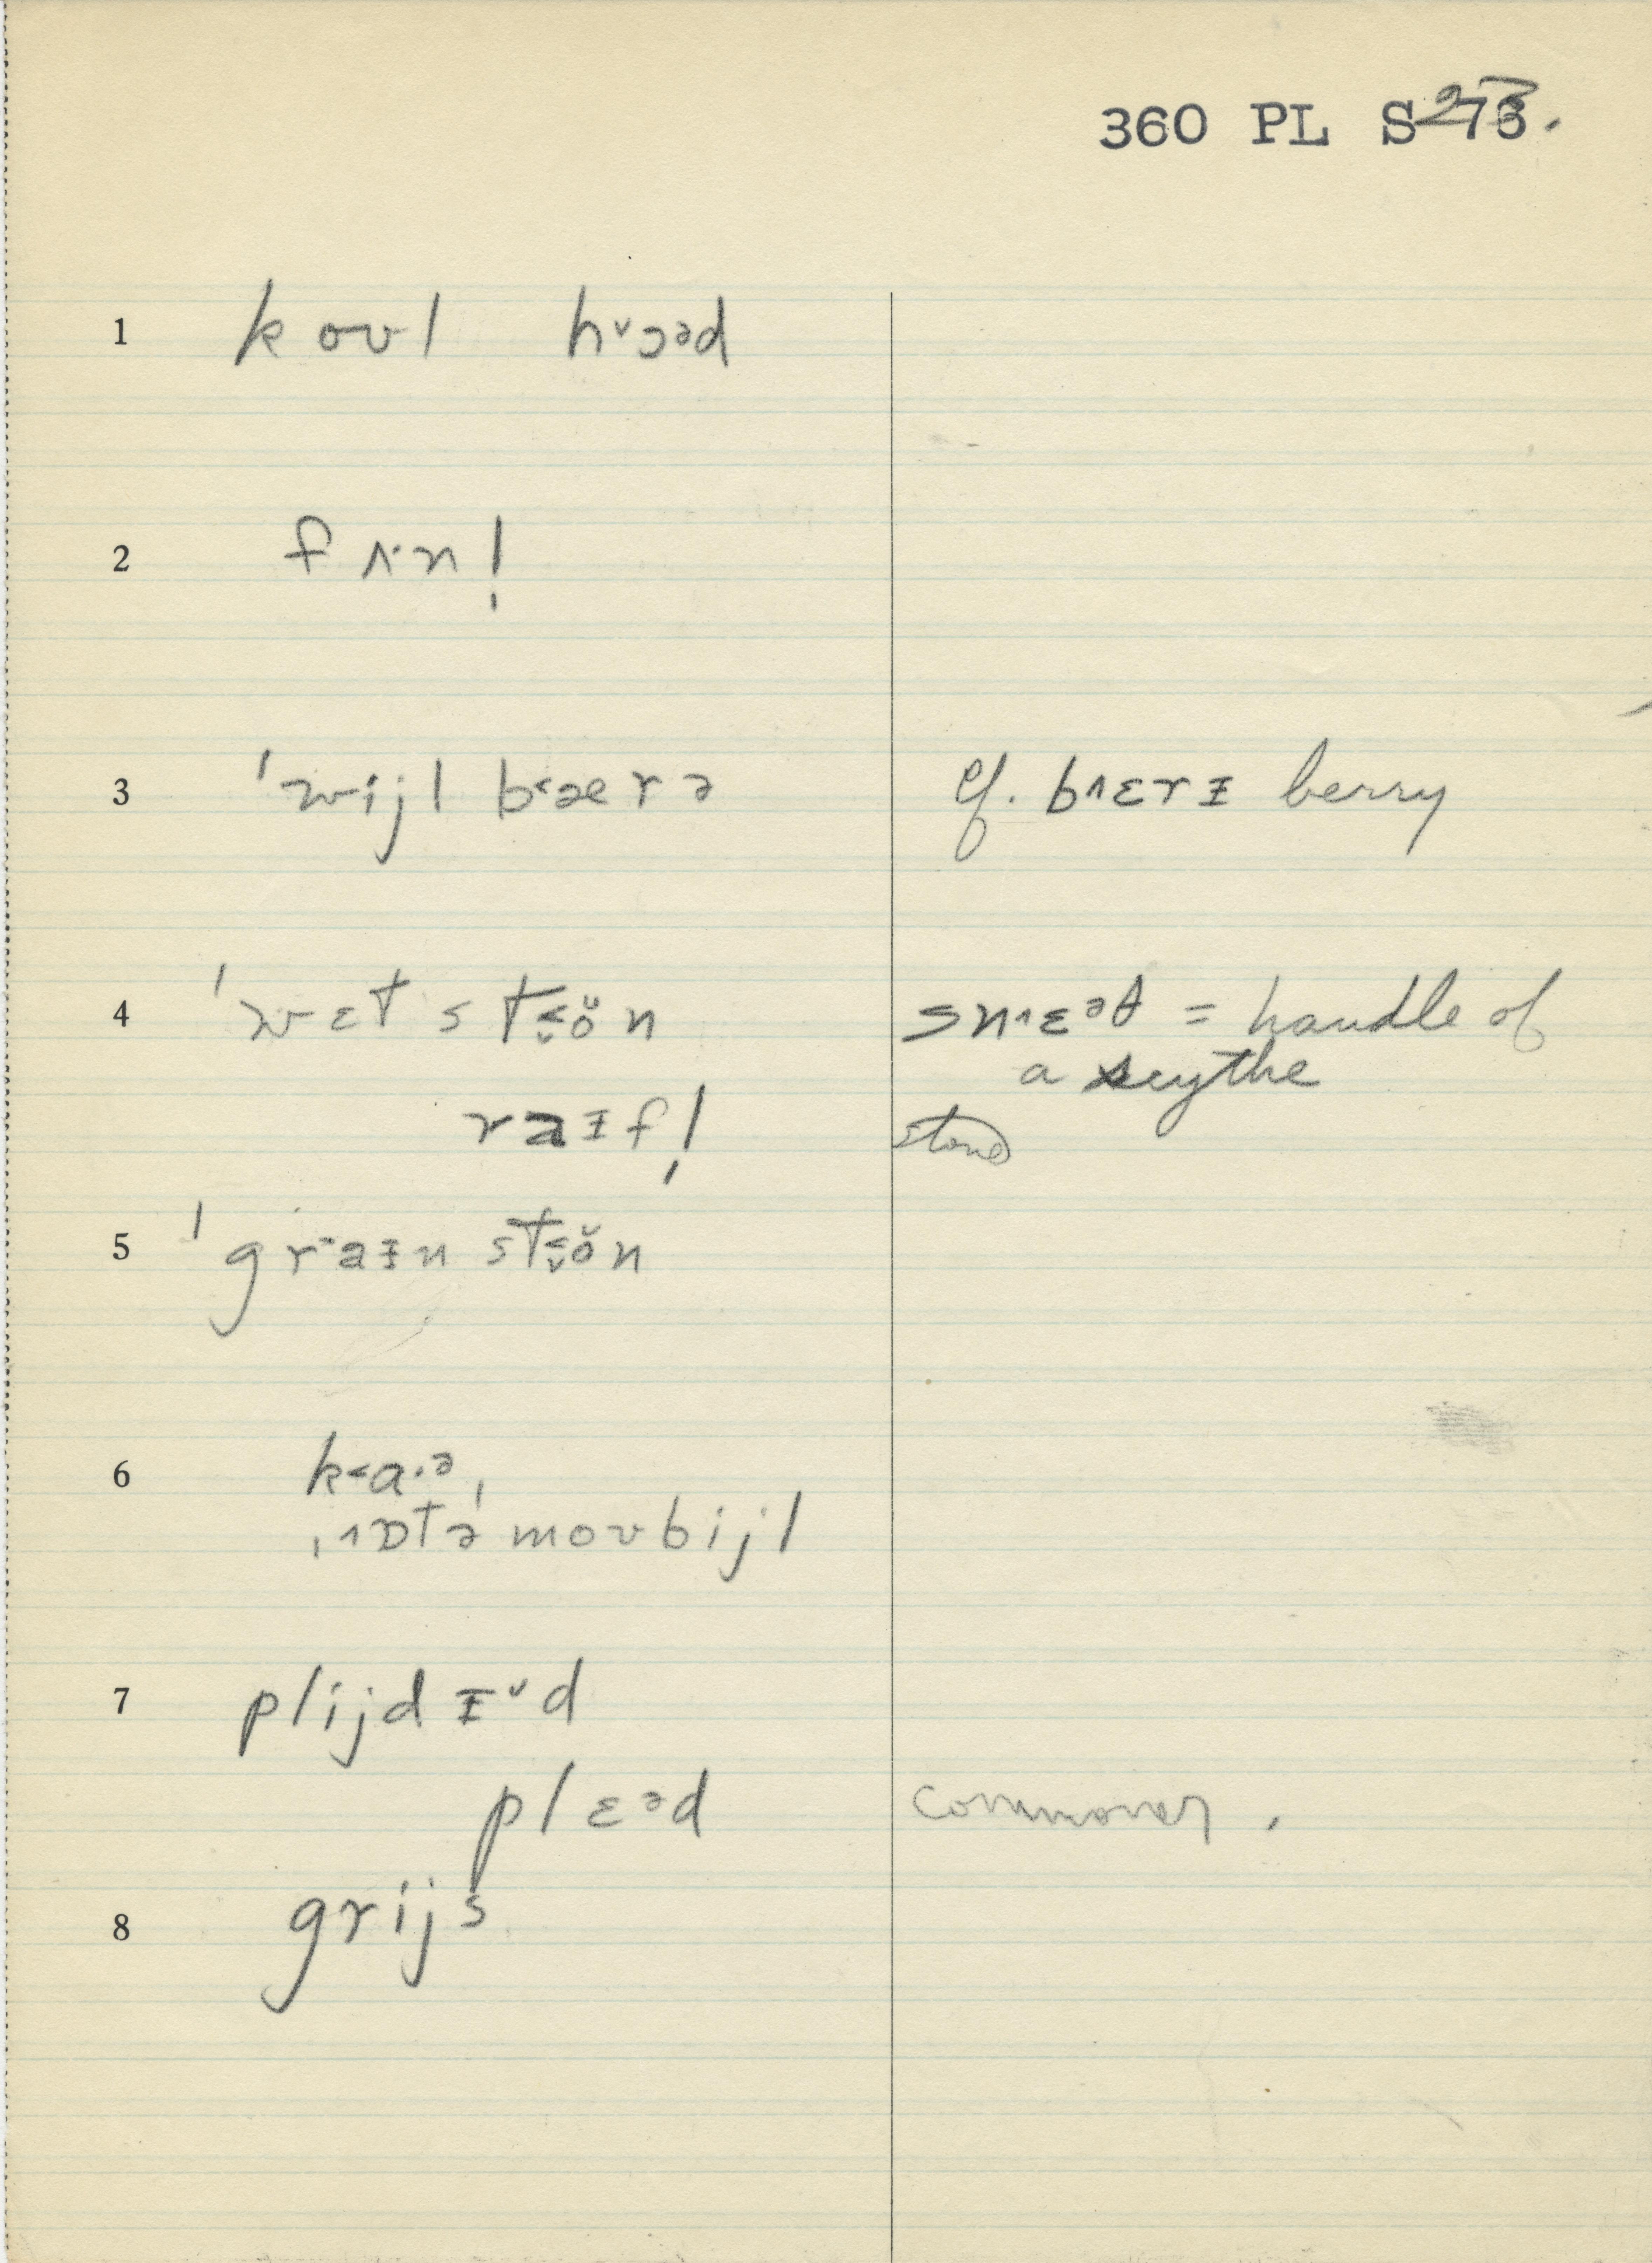 360 PL S273.
1 koʊl hᵛɔᵊd
2 f˄·n!
3 ˈwijl b˂ærə cf. b˄ɛrɪ berry
4 ˈwɛt st˂ŏ̤n sn˄ɛᵊθ = handle of
a scythe
raɪf! stone
5 ˈgraɪn st˂ŏ̤n
6 k˂a·ᵊ,
ˌ˄ɒtəˈmoʊbijl
7 plijdɪᵛd
plɛᵊd commoner.
8 grijs